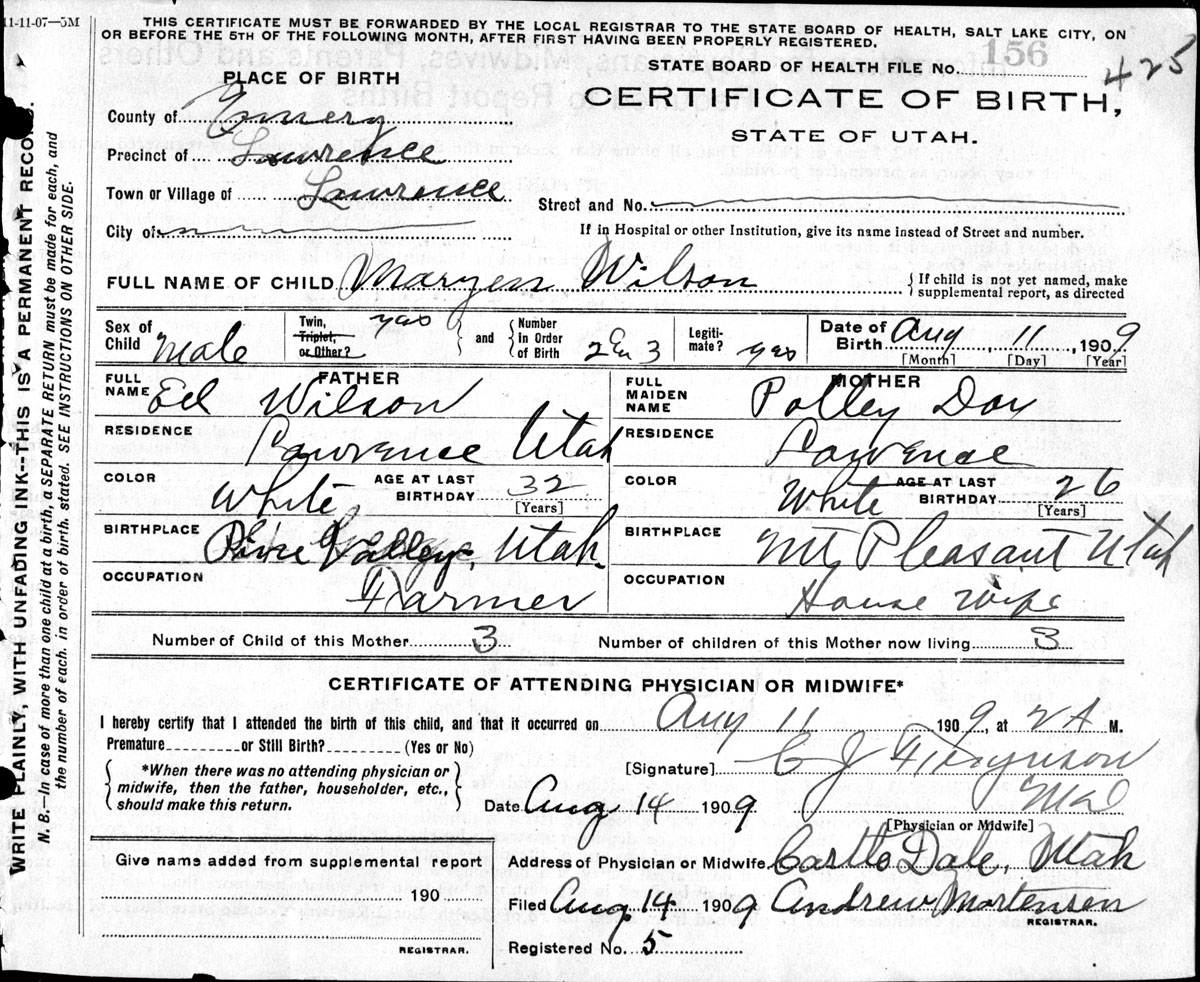 11-11-07—5M
THIS CERTIFICATE MUST BE FORWARDED BY THE LOCAL REGISTRAR TO THE STATE BOARD OF HEALTH, SALT LAKE CITY, ON
OR BEFORE THE 5TH OF THE FOLLOWING MONTH, AFTER FIRST HAVING BEEN PROPERLY REGISTERED.
WRITE PLAINLY, WITH UNFADING INK--THIS IS A PERMANENT RECORD.
N. B.—In case of more than one child at a birth, a SEPARATE RETURN must be made for each, and
the number of each, in order of birth, stated. SEE INSTRUCTIONS ON OTHER SIDE.
PLACE OF BIRTH
STATE BOARD OF HEALTH FILE No. 156 425
CERTIFICATE OF BIRTH,
STATE OF UTAH.
County of Emery
Precinct of Lawrence
Town or Village of Lawrence
Street and No.
City of
If in Hospital or other Institution, give its name instead of Street and number.
FULL NAME OF CHILD Wilson
If child is not yet named, make
supplemental report, as directed
Sex of Child Male
Twin, Triplet, or Other? yes
and
Number In Order of Birth 3
Legitimate? yes
Date of Birth Aug 11, 1909
[Month] [Day] [Year]
FATHER
FULL NAME Ed Wilson
RESIDENCE Lawrence Utah
COLOR White
AGE AT LAST BIRTHDAY 32
[Years]
BIRTHPLACE Pine Valley, Utah
OCCUPATION Farmer
MOTHER
FULL MAIDEN NAME Polley Day
RESIDENCE Lawrence
COLOR White
AGE AT LAST BIRTHDAY 26
[Years]
BIRTHPLACE Mt Pleasant Utah
OCCUPATION House Wife
Number of Child of this Mother 3
Number of children of this Mother now living 3
CERTIFICATE OF ATTENDING PHYSICIAN OR MIDWIFE*
I hereby certify that I attended the birth of this child, and that it occurred on Aug 11 1909, at 2 A M.
Premature or Still Birth? (Yes or No)
*When there was no attending physician or
midwife, then the father, householder, etc.,
should make this return.
[Signature] C J
[Physician or Midwife]
Date Aug 14 1909
Give name added from supplemental report
190
REGISTRAR.
Address of Physician or Midwife Castle Dale, Utah
Filed Aug. 14 1909 Andrew Mortensen
REGISTRAR.
Registered No. 5